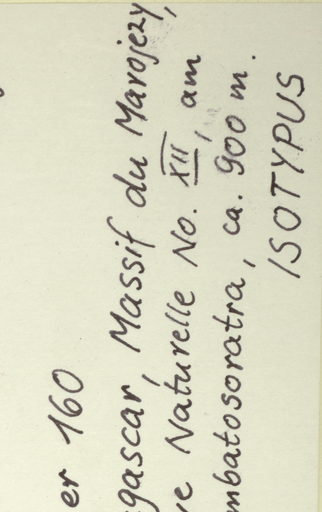 er 160
gascar, Massif du Marojezy,
ve Naturelle No. XII, am
mbatosoratra, ca. 900 m.
ISOTYPUS